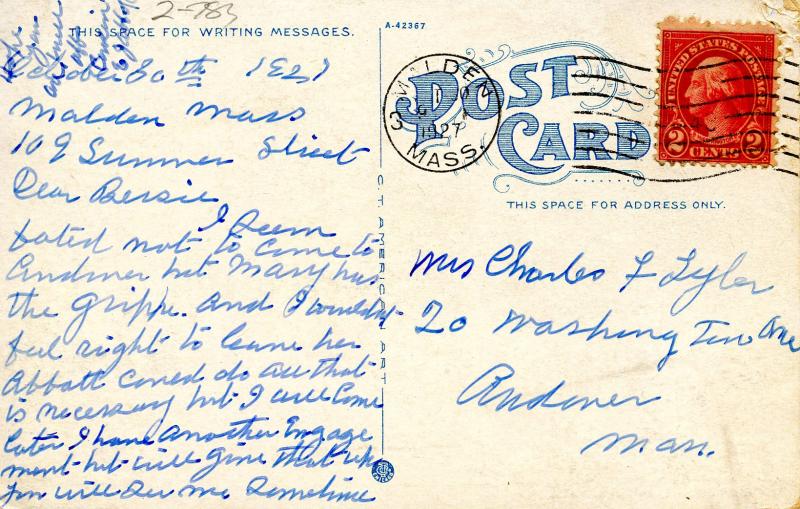 2-783
THIS SPACE FOR WRITING MESSAGES.
A-42367
October 30th 1927
Malden Mass
109 Summer Street
Dear Bersie
I Seem
bated not to Come to
Andover but Mary has
the grippe. And I wouldnt
feel right to leave her
Abbott Coned do all that
is necessary but I will Come
Later I have Another Engage
ment but will give that up
you will See me Sometime
C. T. AMERICAN ART
MALDEN
3
1927
MASS.
POST CARD
UNITED STATES POSTAGE
2 CENTS 2
THIS SPACE FOR ADDRESS ONLY.
Mrs Charles F Tyler
20 Washington Ave
Andover
Mass.